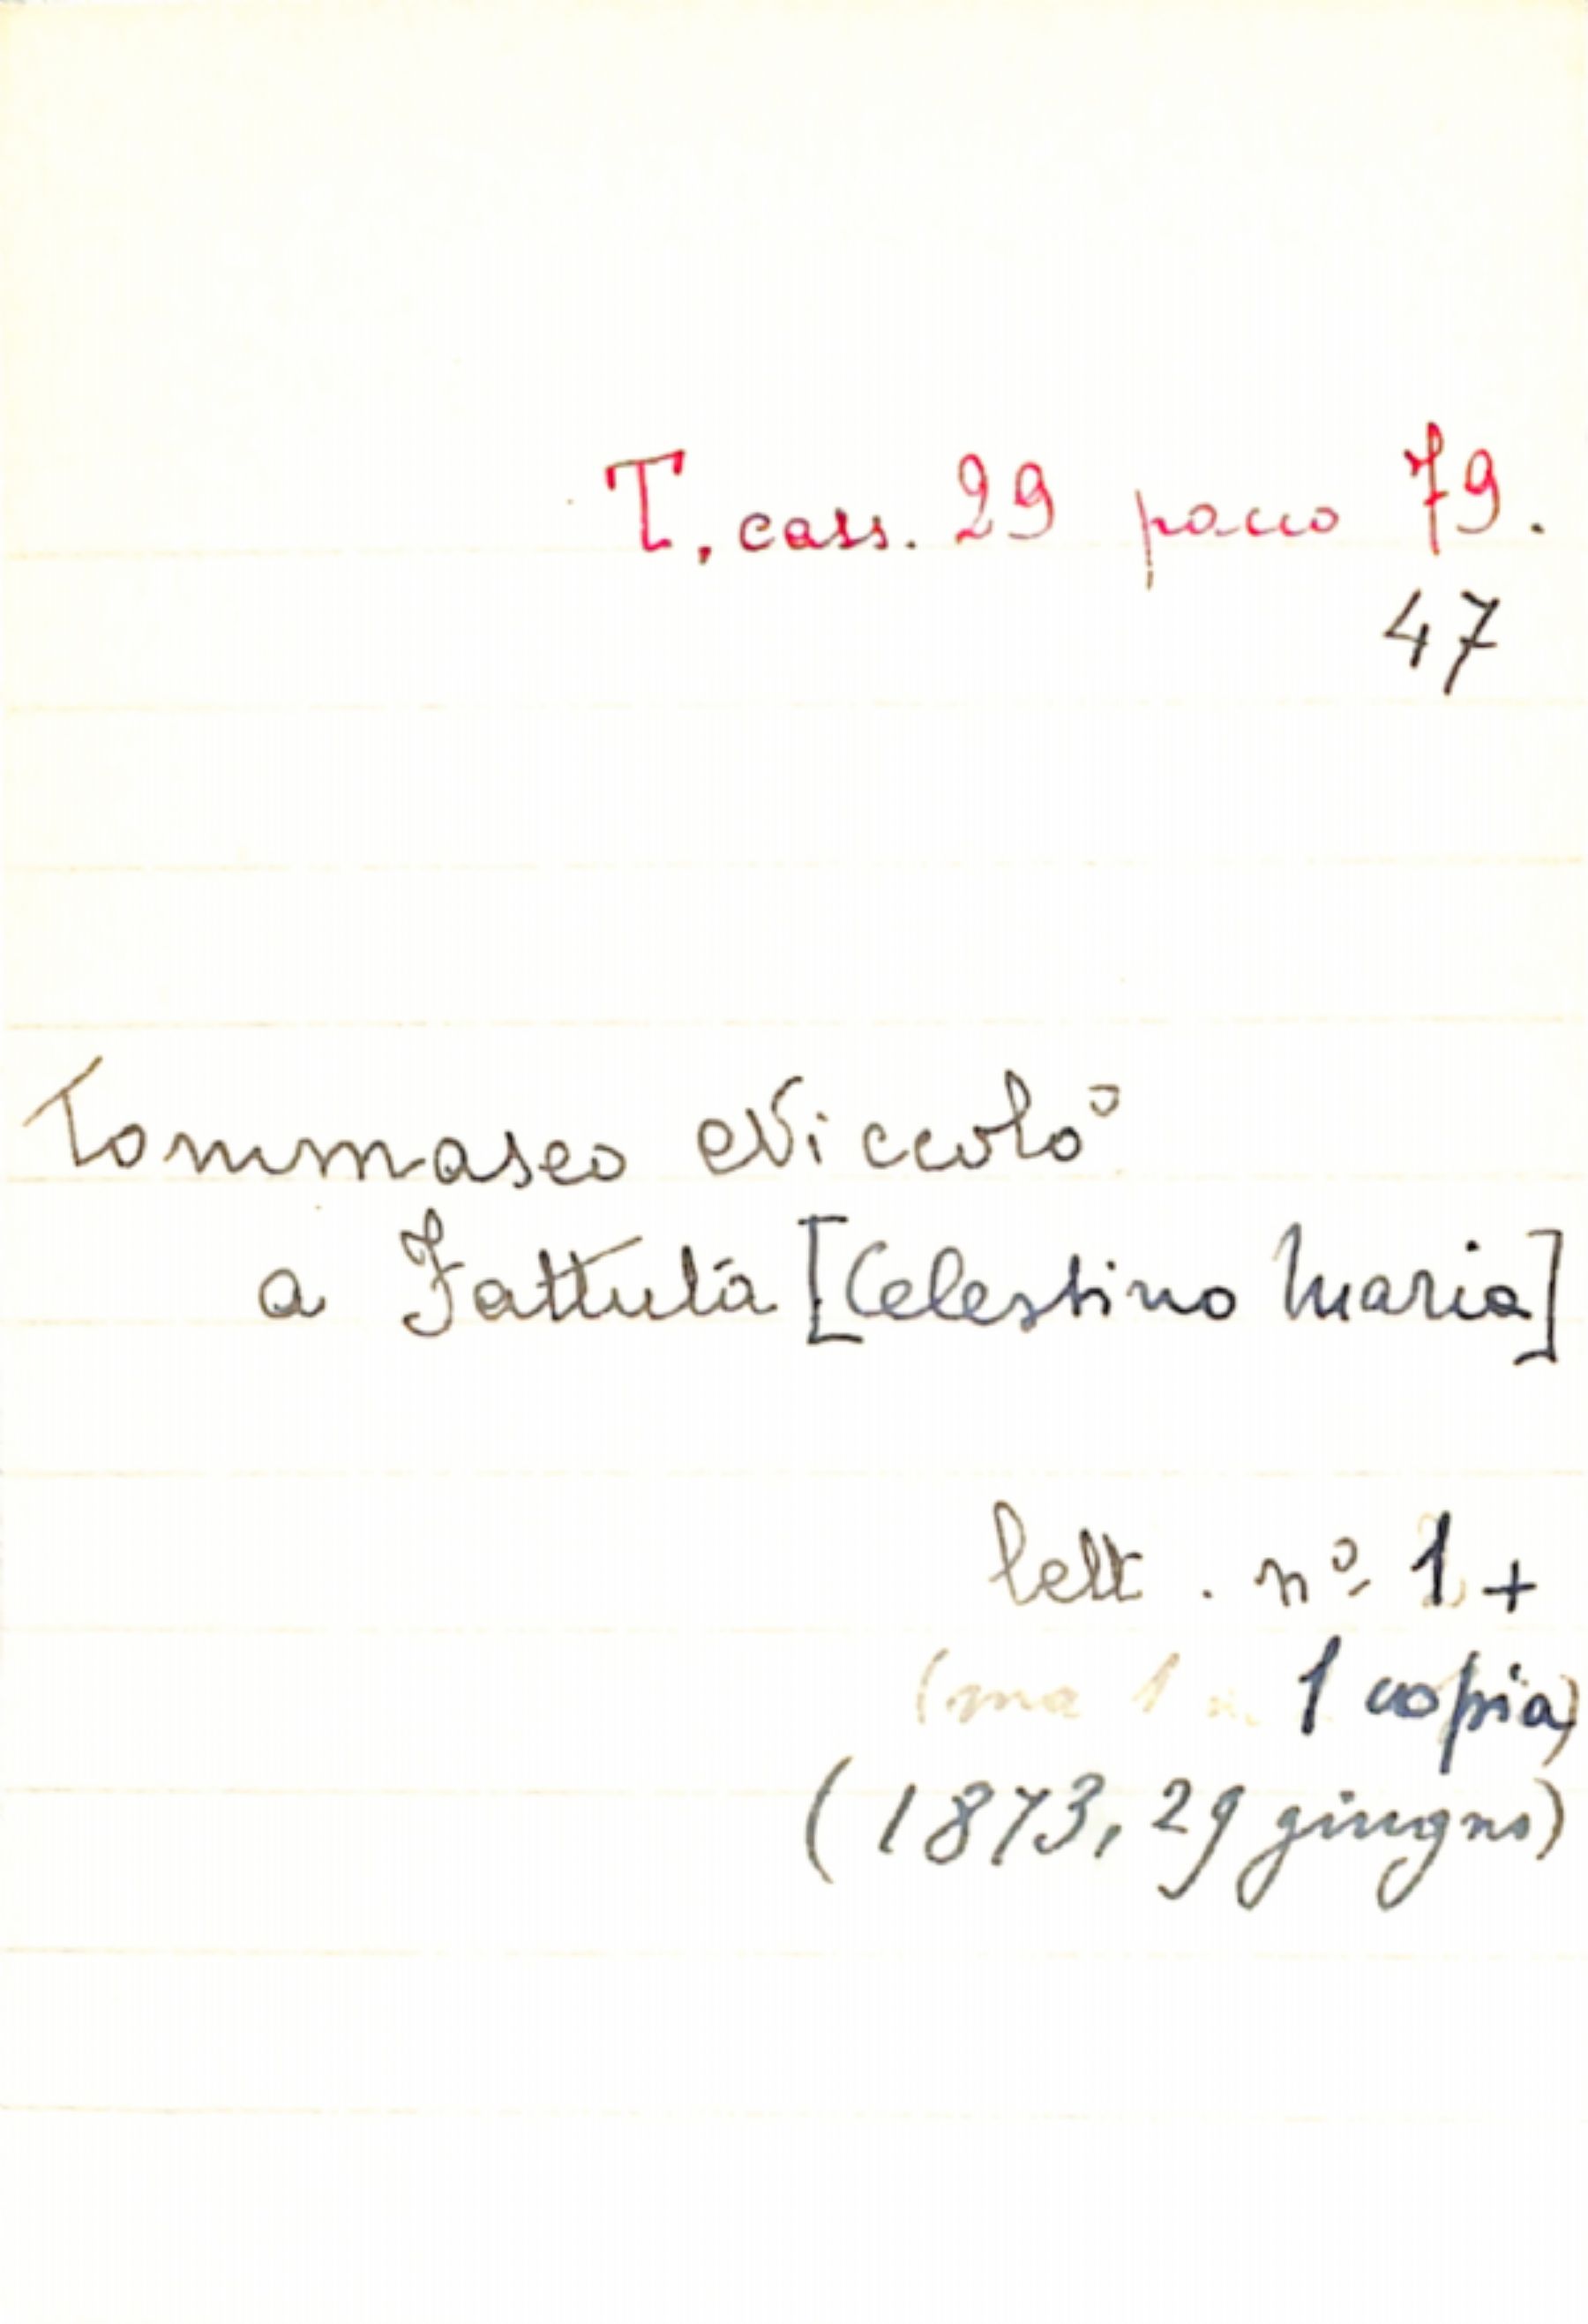 T. cass. 29 pacco 79.
47
Tommaseo Niccolò
a Fattutà [Celestino Maria]
lett. nº 1 +
1 copia)
(1873, 29 giugno)